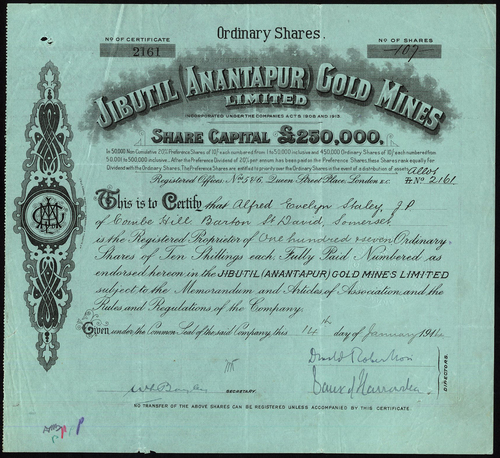 Ordinary Shares.
No OF CERTIFICATE
2161
No OF SHARES
107
JIBUTIL (ANANTAPUR) GOLD MINES
LIMITED
INCORPORATED UNDER THE COMPANIES ACTS, 1908 AND 1913.
SHARE CAPITAL £250,000,
In 50,000 Non Cumulative 20% Preference Shares of 10/- each numbered from 1 to 50,000 inclusive and 450,000 Ordinary Shares of 10/- each numbered from
50,001 to 500,000 inclusive. After the Preference Dividend of 20% per annum has been paid on the Preference Shares, these Shares rank equally for
Dividend with the Ordinary Shares. The Preference Shares are entitled to priority over the Ordinary Shares in the event of a distribution of assets.
Allot
Registered Offices, Nos. 5 & 6, Queen Street Place, London E.C. No 2161
This is to Certify that Alfred Evelyn Staley, J.P
of Combe Hill Barton St David, Somerset
is the Registered Proprietor of One hundred & seven Ordinary
Shares of Ten Shillings each, Fully Paid Numbered as
endorsed hereon in the JIBUTIL (ANANTAPUR) GOLD MINES LIMITED
subject to the Memorandum and Articles of Association, and the
Rules and Regulations of the Company.
Given under the Common Seal of the said Company, this 14th day of January 191
David Robertson
SECRETARY.
DIRECTORS.
NO TRANSFER OF THE ABOVE SHARES CAN BE REGISTERED UNLESS ACCOMPANIED BY THIS CERTIFICATE